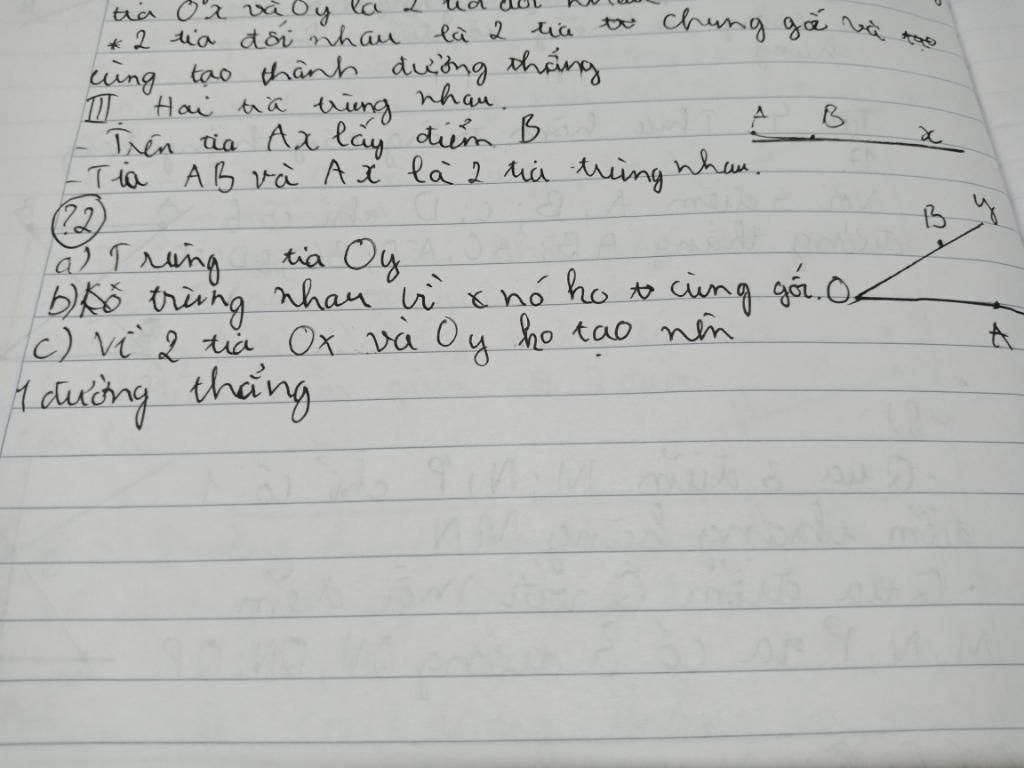 tia Ox và Oy là 2 tia đối
* 2 tia đối nhau là 2 tia chung gố và tạo
cùng tạo thành đường thẳng
III. Hai tra trùng nhau.
- Trên tia Ax lấy điểm B
A B x
- Tia AB và Ax là 2 tia trùng nhau.
?2
B y
a) Trùng tia Oy
b) Kô trùng nhau vì x nó ho cùng gối. O
A
c) Vì 2 tia Ox và Oy ho tạo nên
1 đường thẳng